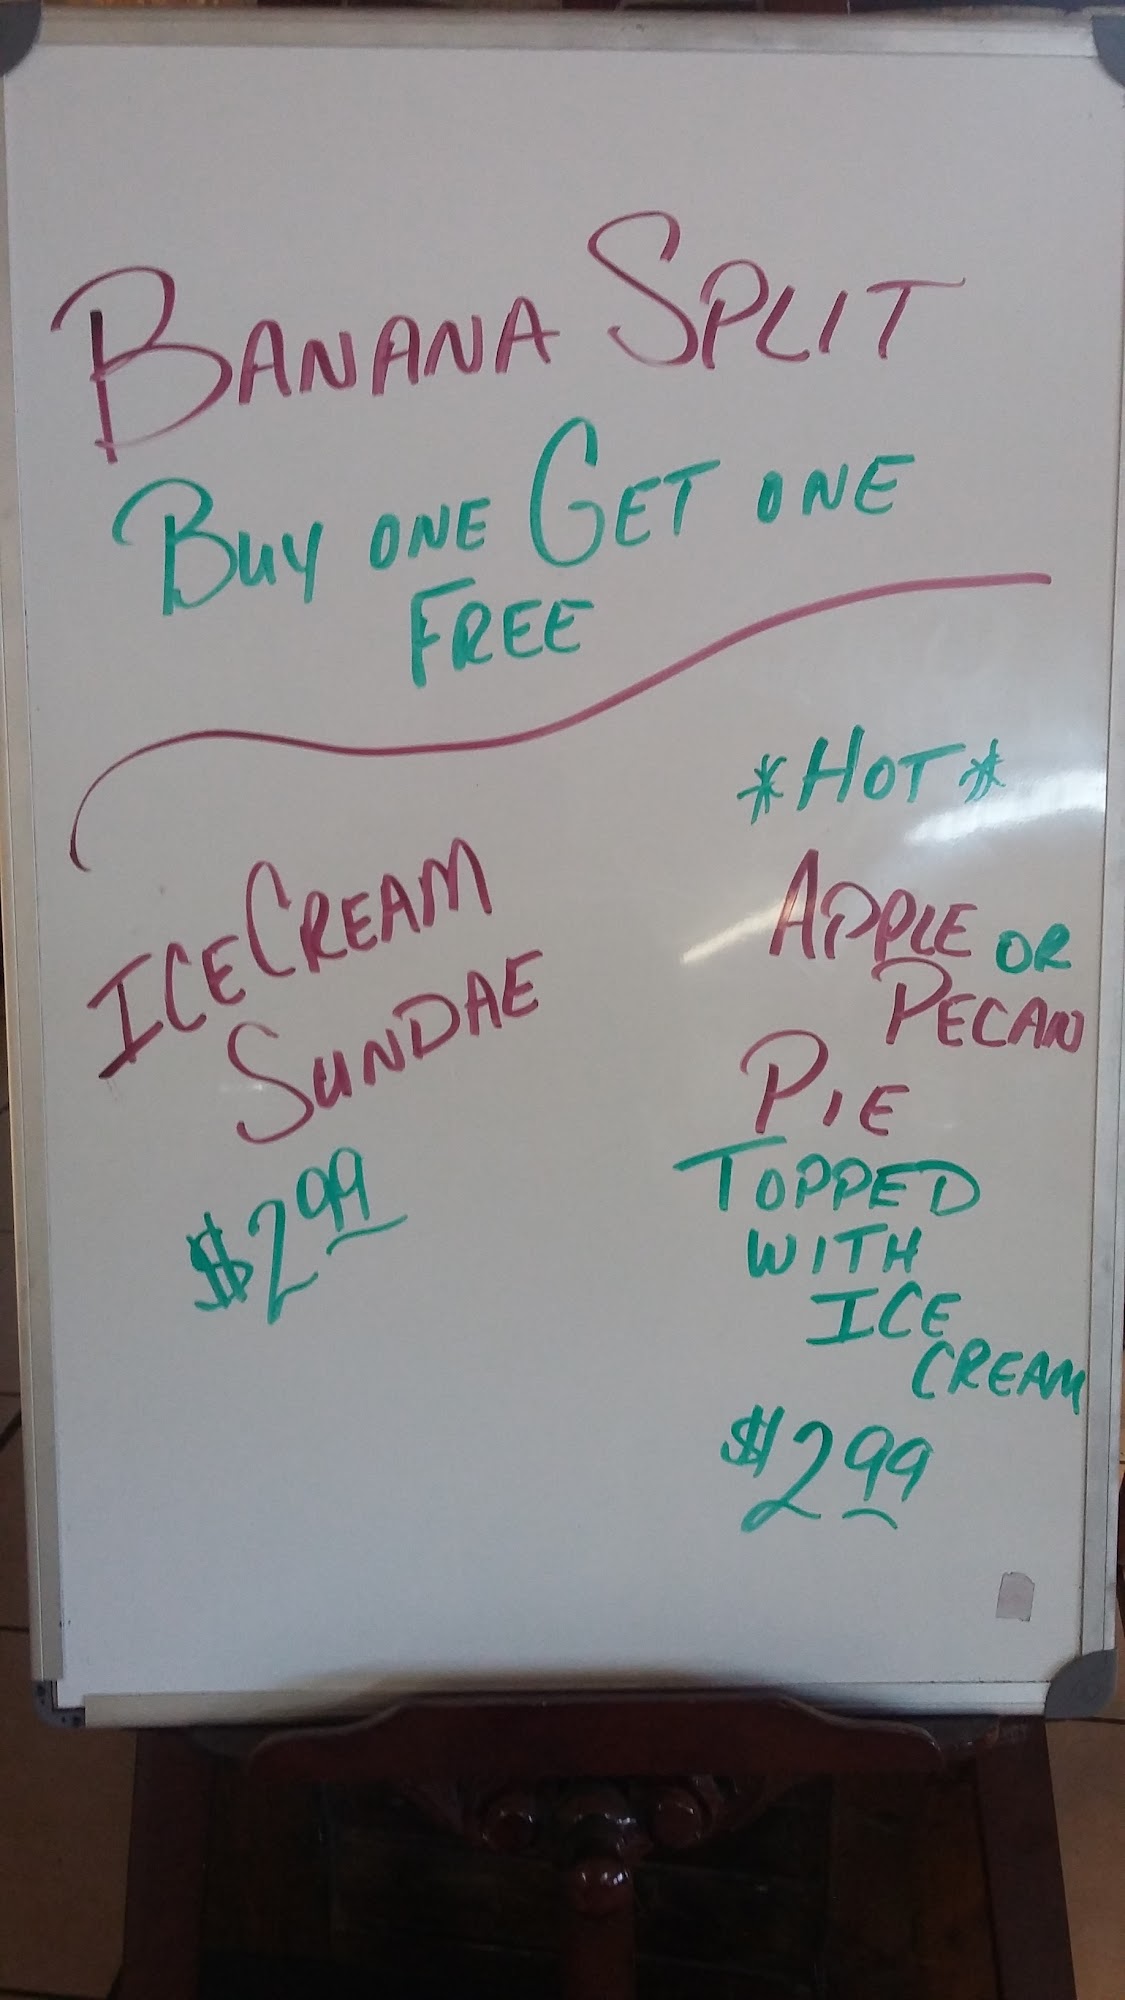 BANANA SPLIT
BUY ONE GET ONE
FREE
ICE CREAM
SUNDAE
$2.99
*HOT*
APPLE OR
PECAN
PIE
TOPPED
WITH
ICE
CREAM
$2.99